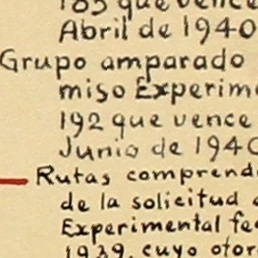 185 que vence
Abril de 1940
Grupo amparado
miso Experim
192 que vence
Junio de 1940
Rutas comprend
de la solicitud
Experimental fe
1939, cuyo otor